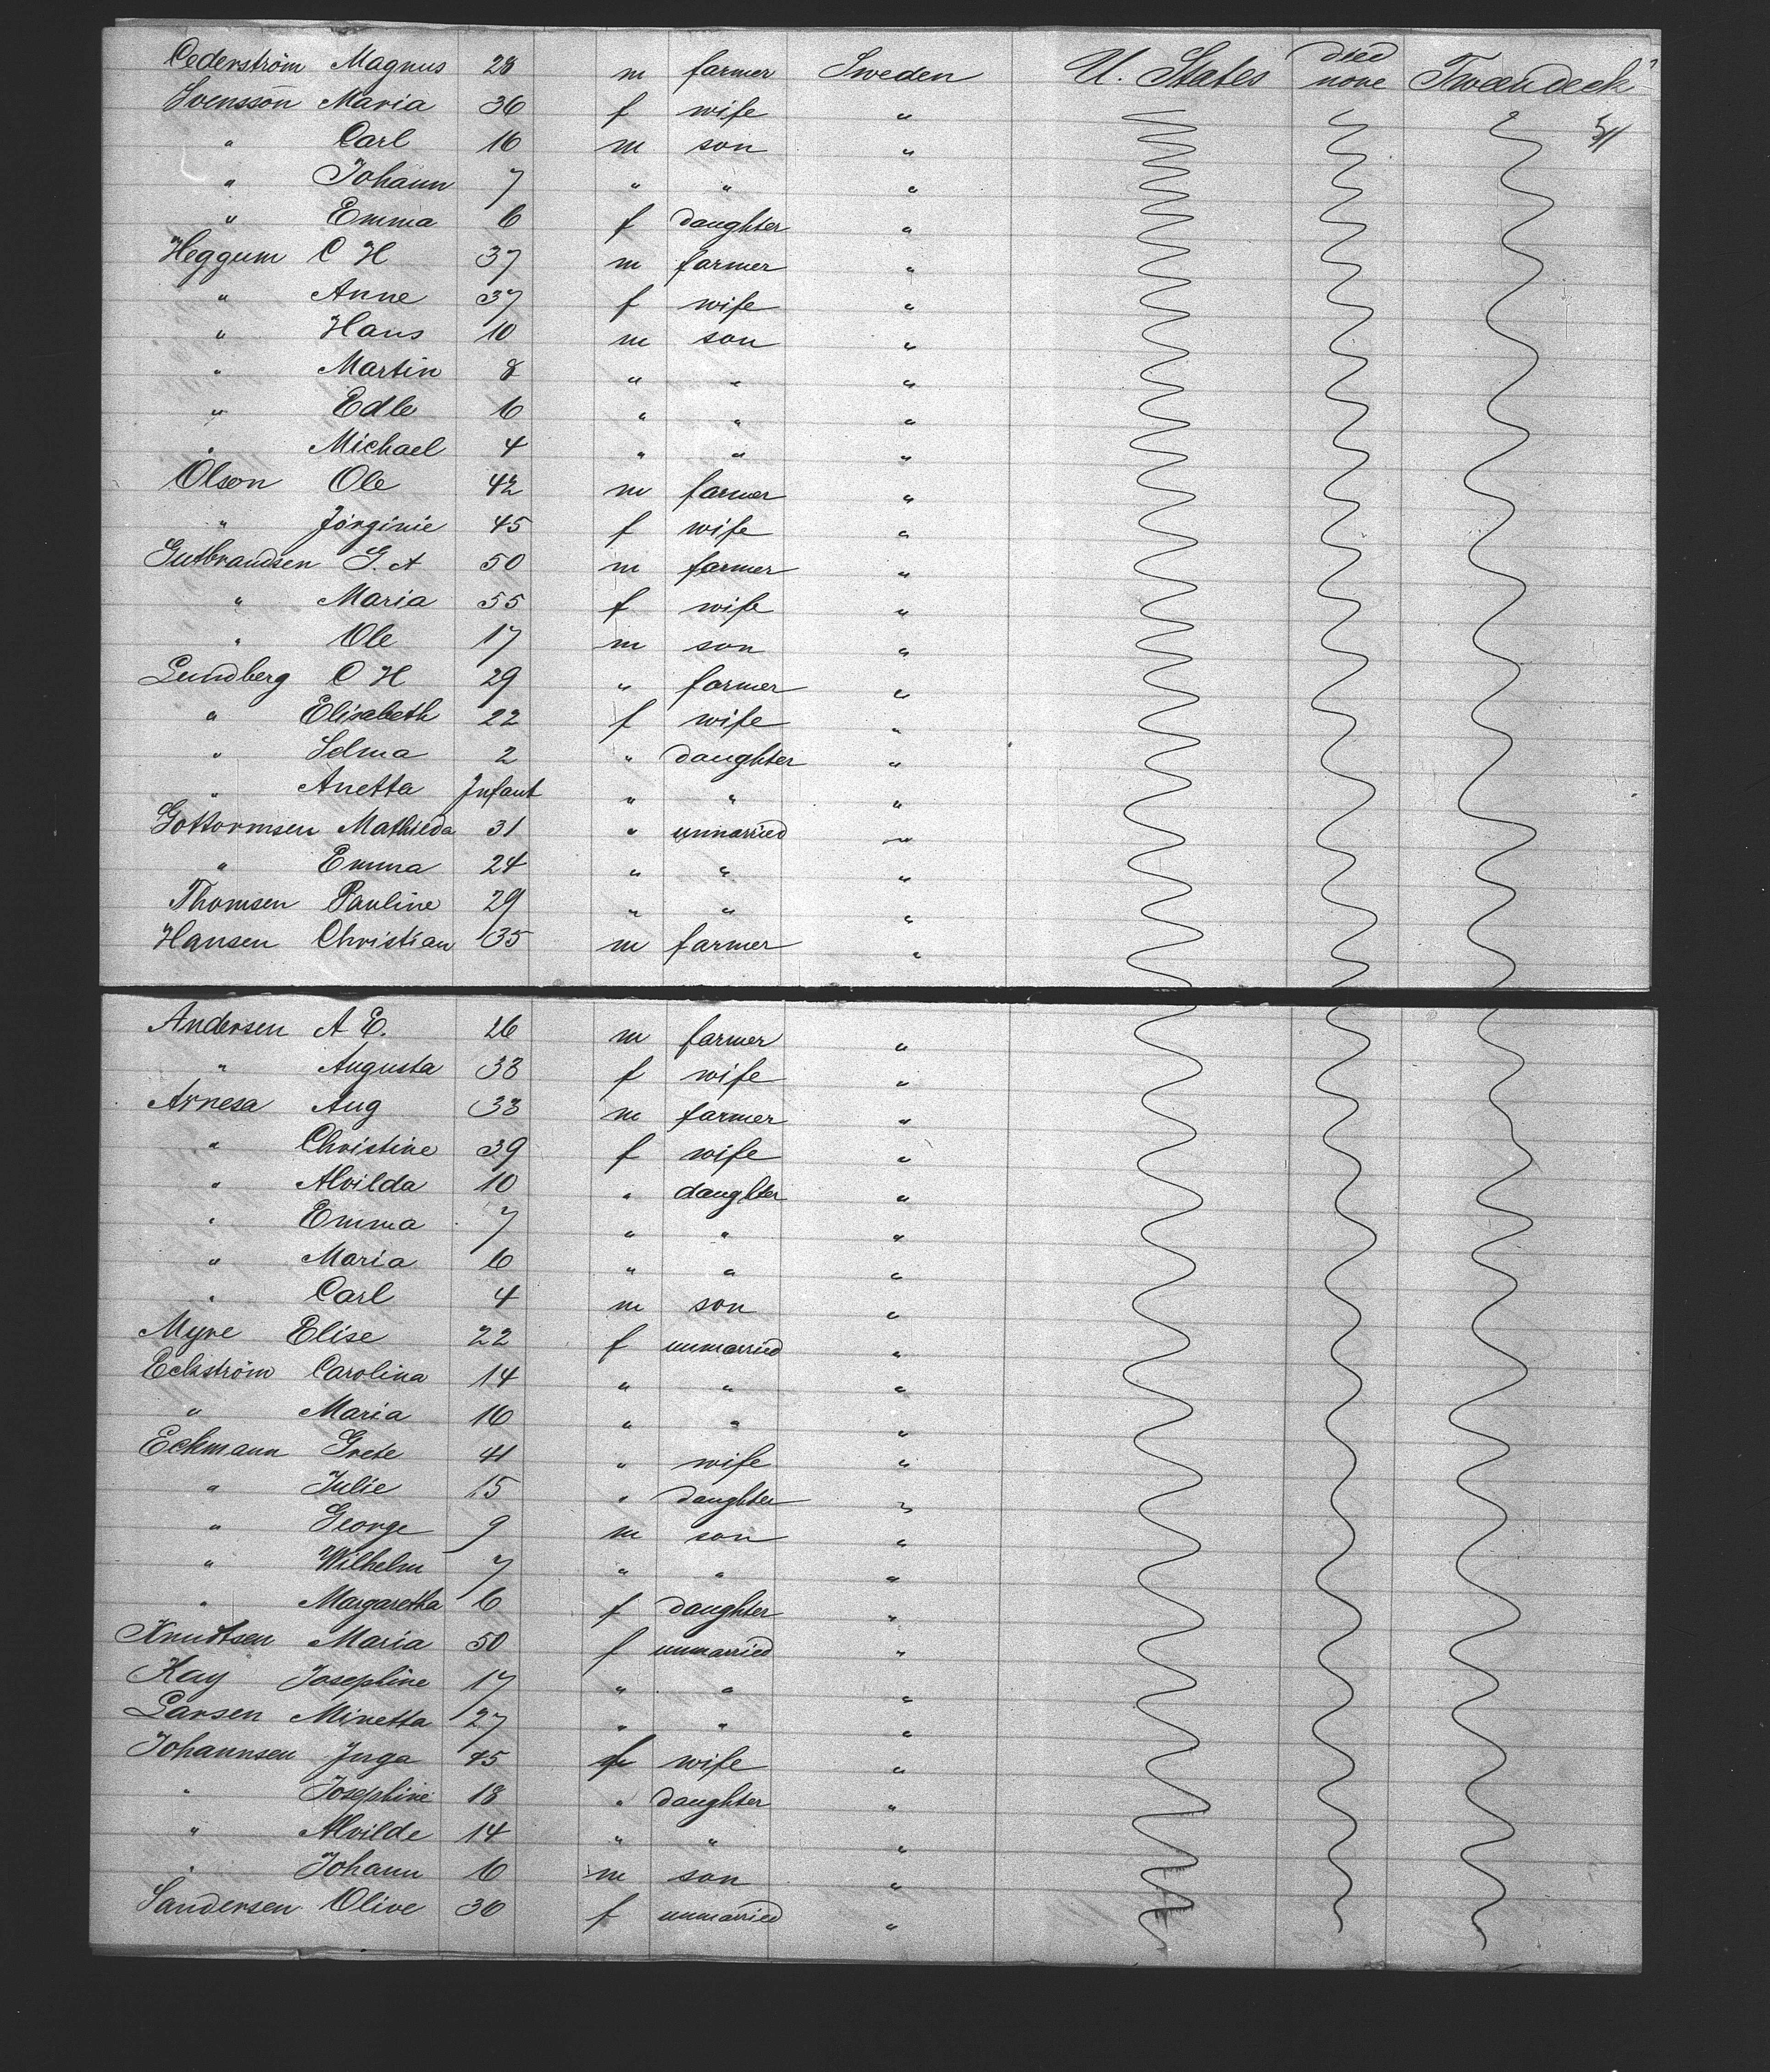 Cederström Magnus 28 m farmer Sweden U. States died none Tween deck
Svensson Maria 36 f wife "
" Carl 16 m son "
" Johann 7 " " "
" Emma 6 f daughter "
Heggum C H 37 m farmer "
" Anne 37 f wife "
" Hans 10 m son "
" Martin 8 " " "
" Edle 6 " " "
" Michael 4 " " "
Olson Ole 42 m farmer "
" Jörginie 45 f wife "
Gutbrandsen G. A 50 m farmer "
" Maria 55 f wife "
" Ole 17 m son "
Lundberg C H 29 " farmer "
" Elisabeth 22 f wife "
" Selma 2 " daughter "
" Anetta Infant " " "
Gottormsen Mathilda 31 " unmarried "
" Emma 24 " " "
Thomsen Pauline 29 " " "
Hansen Christian 35 m farmer "
Andersen A E. 26 m farmer "
" Augusta 38 f wife "
Arnesa Aug 38 m farmer "
" Christine 39 f wife "
" Alvilda 10 " daughter "
" Emma 7 " " "
" Maria 6 " " "
" Carl 4 m son "
Myre Elise 22 f unmarried "
Eckström Carolina 14 " " "
" Maria 16 " " "
Eckmann Grete 41 " wife "
" Julie 15 " daughter "
" George 9 m son "
" Wilhelm 7 " " "
" Margaretha 6 f daughter "
Knudtsen Maria 50 f unmarried "
Kay Josephine 17 " " "
Larsen Minetta 27 " " "
Johannsen Inga 45 f wife "
" Josephine 18 " daughter "
" Alvilde 14 " " "
" Johann 6 m son "
Sandersen Olive 36 f unmarried "